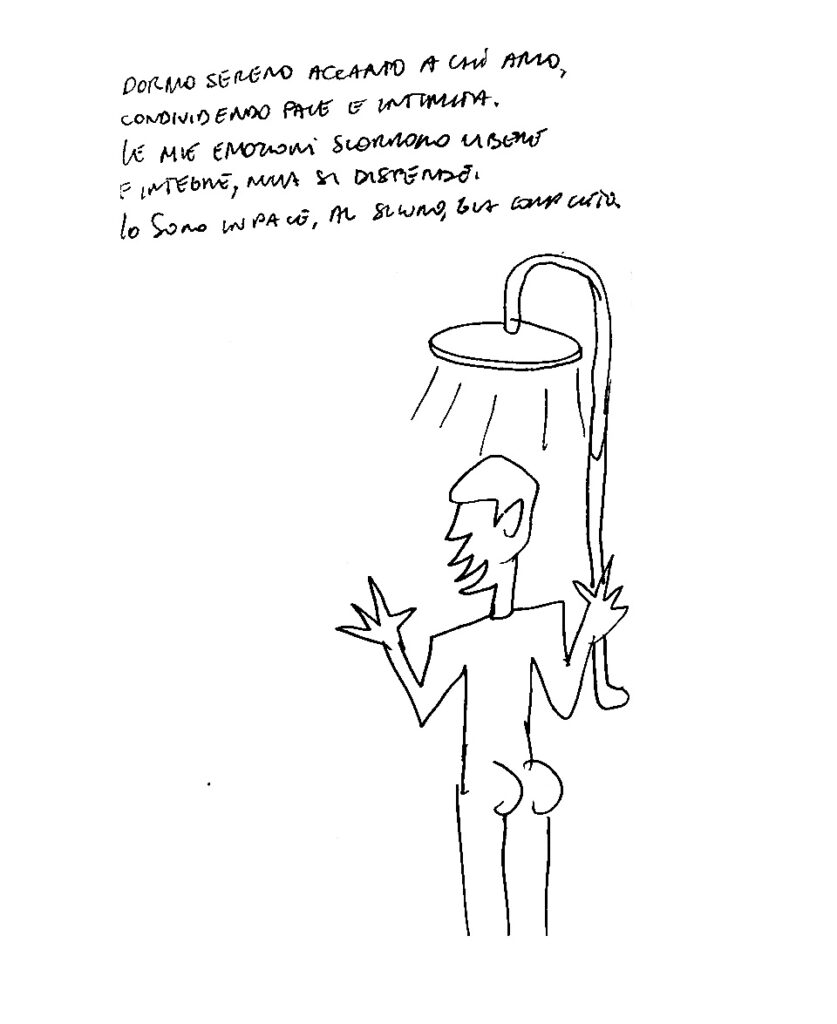 DORMO SERENO ACCANTO A CHI AMO,
CONDIVIDENDO PACE E INTIMITÀ.
LE MIE EMOZIONI SCORRONO LIBERE
E INTEGRE, NULLA SI DISPERDE.
IO SONO IN PACE, AL SICURO, GIÀ COMPLETO